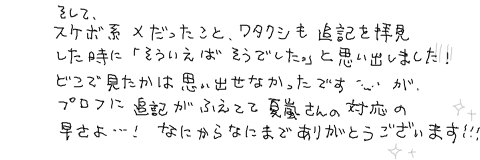 そして、
スケボ系〆だったこと、ワタクシも 追記を拝見
した時に「そういえば そうでした。」と思い出しました!!!!
どこで見たかは思い出せなかったです…‥ が、
プロフに 追記がふえてて 夏嵐さんの 対応の
早さよ…! なにからなにまでありがとうございます!!!